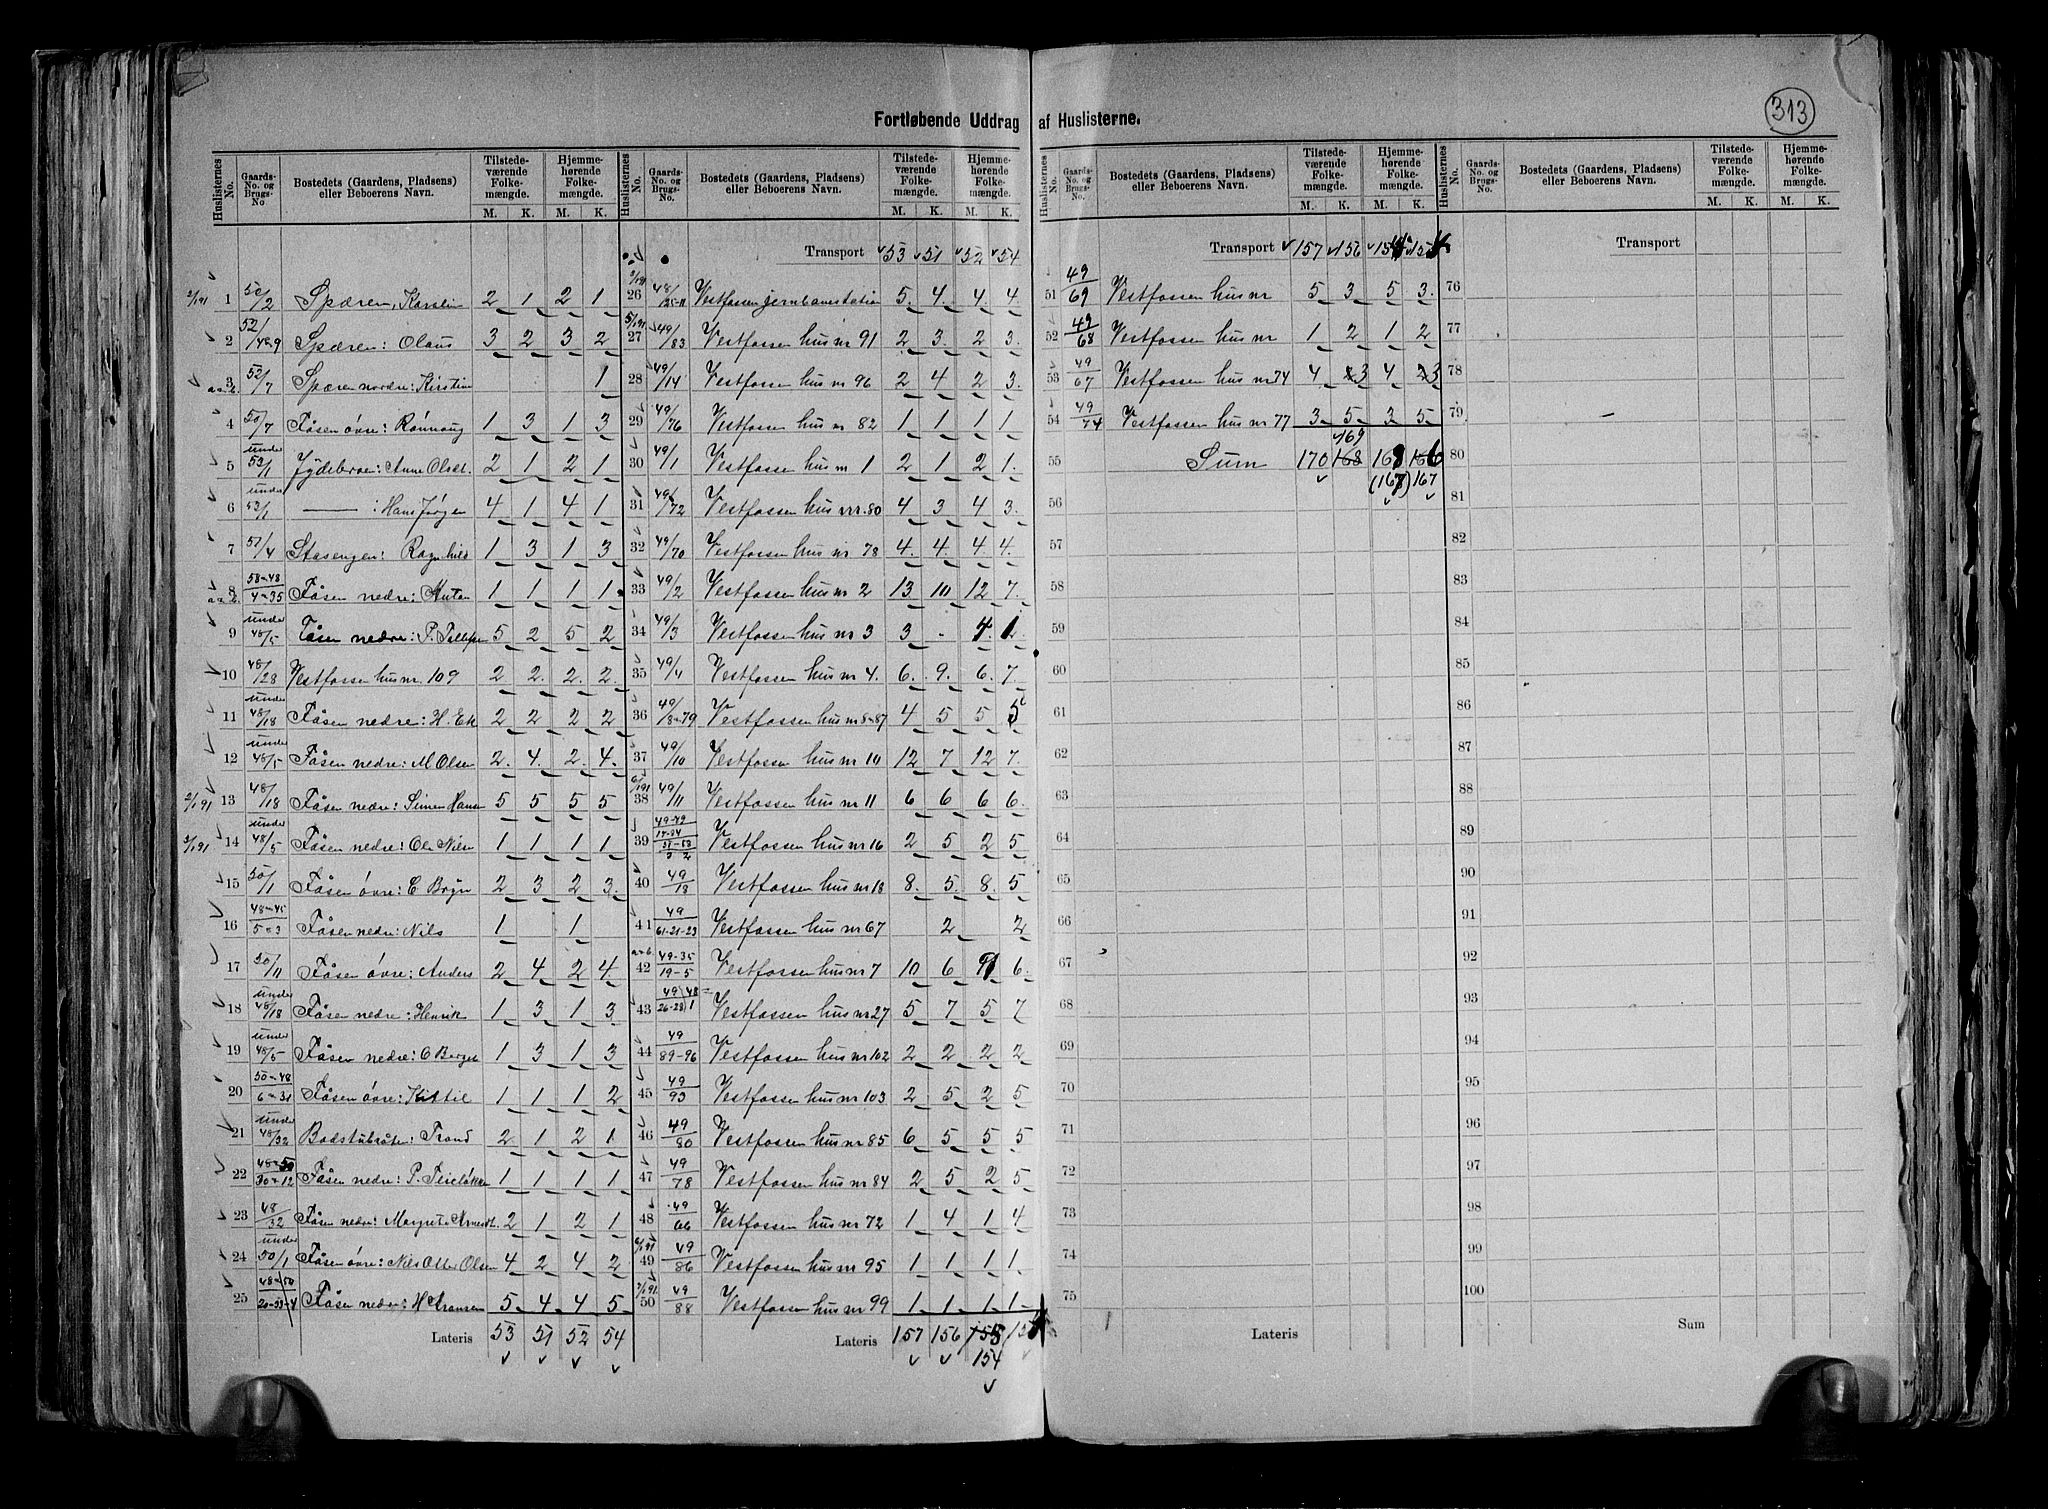 313
Fortløbende Uddrag af Huslisterne.
Huslisternes No. Gaards-No. og Brugs-No Bostedets (Gaardens, Pladsen) eller Beboerens Navn. Tilstedeværende Folkemængde. M. K. Hjemmehørende Folkemængde. M. K.
2/1 91 1 52/2 Spæren, Karstin 2 1 2 1
2 52/1 Spæren: Olaus 3 2 3 2
3 52/7 Spæren nordre: Kirstin 1
4 50/7 Fåsen øvre: Rönnaug 1 3 1 3
5 under 53/1 Jydebroen: Anne Olsdt. 2 1 2 1
6 under 53/1 — : Hans Jørgen 4 1 4 1
7 57/4 Stasengen: Ragnhild 1 3 1 3
8 58-48 4-35 Fåsen nedre: 1 1 1 1
9 under 48/5 Fåsen nedre: P. Tollefsen 5 2 5 2
10 48/28 Vestfossen hus nr. 109 2 2 2 2
11 under 48/18 Fåsen nedre: H. Ek 2 2 2 2
12 under 48/5 Fåsen nedre: M Olsen 2 4 2 4
2/1 91 13 48/18 Fåsen nedre: Simen Hansen 5 5 5 5
3/1 91 14 under 48/5 Fåsen nedre: Ole Nilsen 1 1 1 1
15 50/1 Fåsen øvre: 2 3 2 3
16 48-45 5-3 Fåsen nedre: Nils 1 1
17 50/11 Fåsen øvre: Anders 2 4 2 4
18 under 48/18 Fåsen nedre: Henrik 1 3 1 3
19 under 48/5 Fåsen nedre: C Berget 1 3 1 3
20 50-48 6-31 Fåsen øvre: Kittil 1 1 1 2
21 under 48/32 Badstubråten: Trond 2 1 2 1
22 48-50 30-12 Fåsen nedre: P. 1 1 1 1
23 48/32 Fåsen nedre: Margrete 2 1 2 1
24 under 50/1 Fåsen øvre: Nils Otter Olsen 4 2 4 2
25 48-50 Fåsen nedre: H Fransen 5 4 4 5
Lateris 53 51 52 54
Huslisternes No. Gaards-No. og Brugs-No. Bostedets (Gaardens, Pladsen) eller Beboerens Navn. Tilstedeværende Folkemængde. M. K. Hjemmehørende Folkemængde. M. K.
Transport 53 51 52 54
26 48/25-11 Vestfossen jernbanestation 5 4 4 4
5/1 91 27 49/83 Vestfossen hus nr 91 2 3 2 3
28 49/14 Vestfossen hus nr 96 2 4 2 3
29 49/76 Vestfossen hus nr 82 1 1 1 1
30 49/1 Vestfossen hus nr 1 2 1 2 1
31 49/72 Vestfossen hus nr. 80 4 3 4 3
32 49/70 Vestfossen hus nr 78 4 4 4 4
33 49/2 Vestfossen hus nr 2 13 10 12 7
34 49/3 Vestfossen hus nr 3 3 - 4 1
35 49/4 Vestfossen hus nr 4. 6 9 6 7
36 49/8-79 Vestfossen hus nr 8-87 4 5 5 5
37 49/10 Vestfossen hus nr 10 12 7 12 7
38 49/11 Vestfossen hus nr 11 6 6 6 6
39 49-49 Vestfossen hus nr 16 2 5 2 5
40 49/18 Vestfossen hus nr 18 8 5 8 5
41 49 61-21-23 Vestfossen hus nr 67 2 2
42 49-35 19-5 Vestfossen hus nr 7 10 6 9 6
43 49 48 26-28 1 Vestfossen hus nr 27 5 7 5 7
44 49 89-96 Vestfossen hus nr 102 2 2 2 2
45 49/93 Vestfossen hus nr 103 2 5 2 5
46 49/80 Vestfossen hus nr 85 6 5 5 5
47 49/78 Vestfossen hus nr 84 2 5 2 5
48 49/66 Vestfossen hus nr 72 1 4 1 4
49 49/86 Vestfossen hus nr 95 1 1 1 1
7/1 91 50 49/88 Vestfossen hus nr 99 1 1 1 1
Lateris 157 156 155
154
Huslisternes No. Gaards-No. og Brugs-No. Bostedets (Gaardens, Pladsen) eller Beboerens Navn. Tilstedeværende Folkemængde. M. K. Hjemmehørende Folkemængde. M. K.
Transport 157 156 154
51 49/69 Vestfossen hus nr 5 3 5 3
52 49/68 Vestfossen hus nr 1 2 1 2
53 49/67 Vestfossen hus nr 74 4 3 4 3
54 49/74 Vestfossen hus nr 77 3 5 3 5
169
55 Sum 170 168 168 166
56 (167) 167
57
58
59
60
61
62
63
64
65
66
67
68
69
70
71
72
73
74
75
Lateris
Huslisternes No. Gaards-No. og Brugs-No. Bostedets (Gaardens, Pladsen) eller Beboerens Navn. Tilstedeværende Folkemængde. M. K. Hjemmehørende Folkemængde. M. K.
Transport
76
77
78
79
80
81
82
83
84
85
86
87
88
89
90
91
92
93
94
95
96
97
98
99
100
Sum